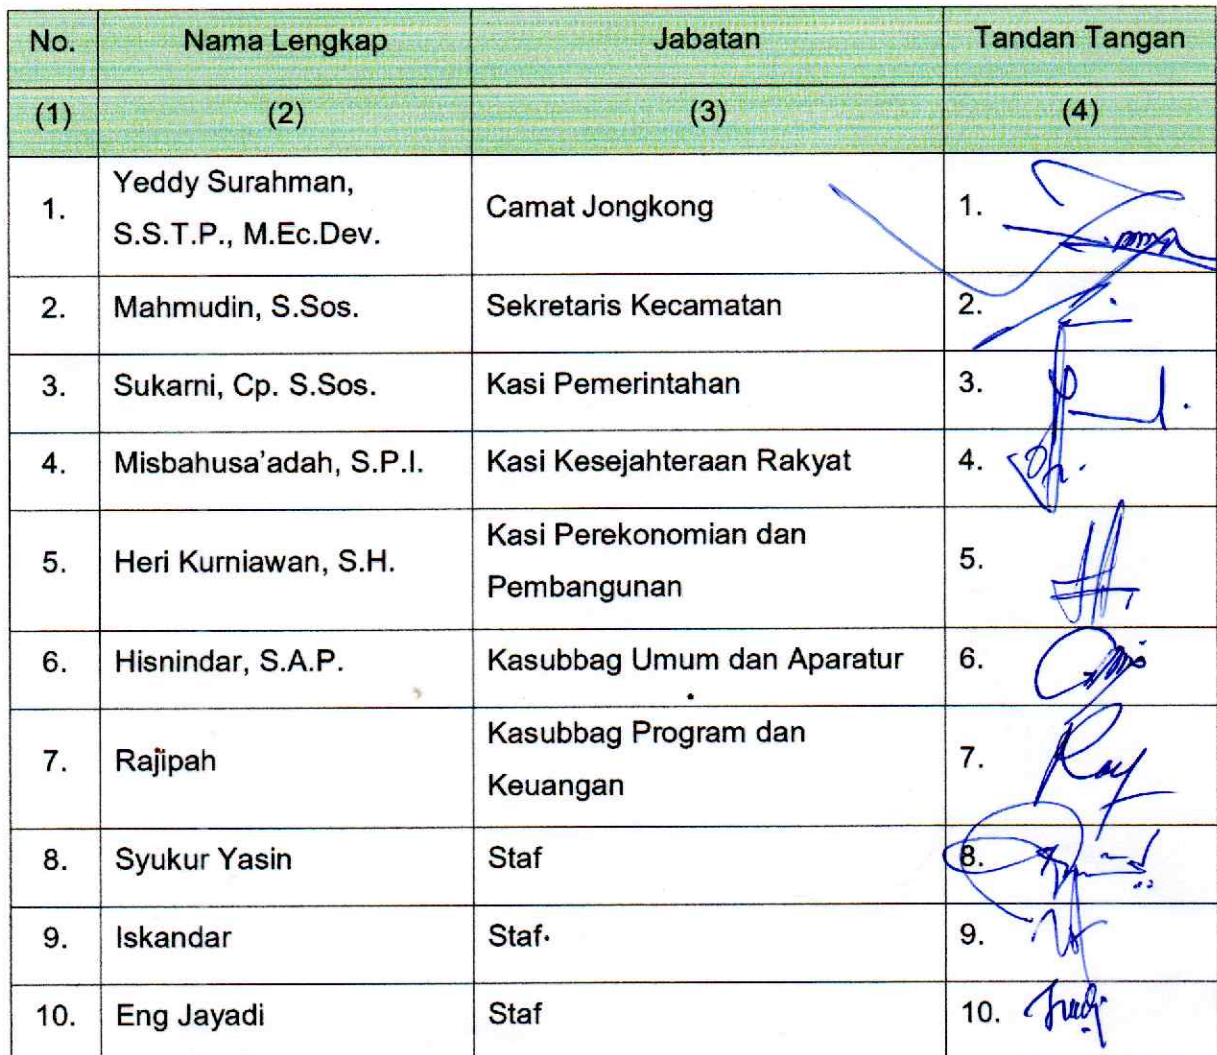 No. Nama Lengkap Jabatan Tandan Tangan
(1) (2) (3) (4)
1. Yeddy Surahman, S.S.T.P., M.Ec.Dev. Camat Jongkong 1.
2. Mahmudin, S.Sos. Sekretaris Kecamatan 2.
3. Sukarni, Cp. S.Sos. Kasi Pemerintahan 3.
4. Misbahusa'adah, S.P.I. Kasi Kesejahteraan Rakyat 4.
5. Heri Kurniawan, S.H. Kasi Perekonomian dan Pembangunan 5.
6. Hisnindar, S.A.P. Kasubbag Umum dan Aparatur 6.
7. Rajipah Kasubbag Program dan Keuangan 7.
8. Syukur Yasin Staf 8.
9. Iskandar Staf 9.
10. Eng Jayadi Staf 10.